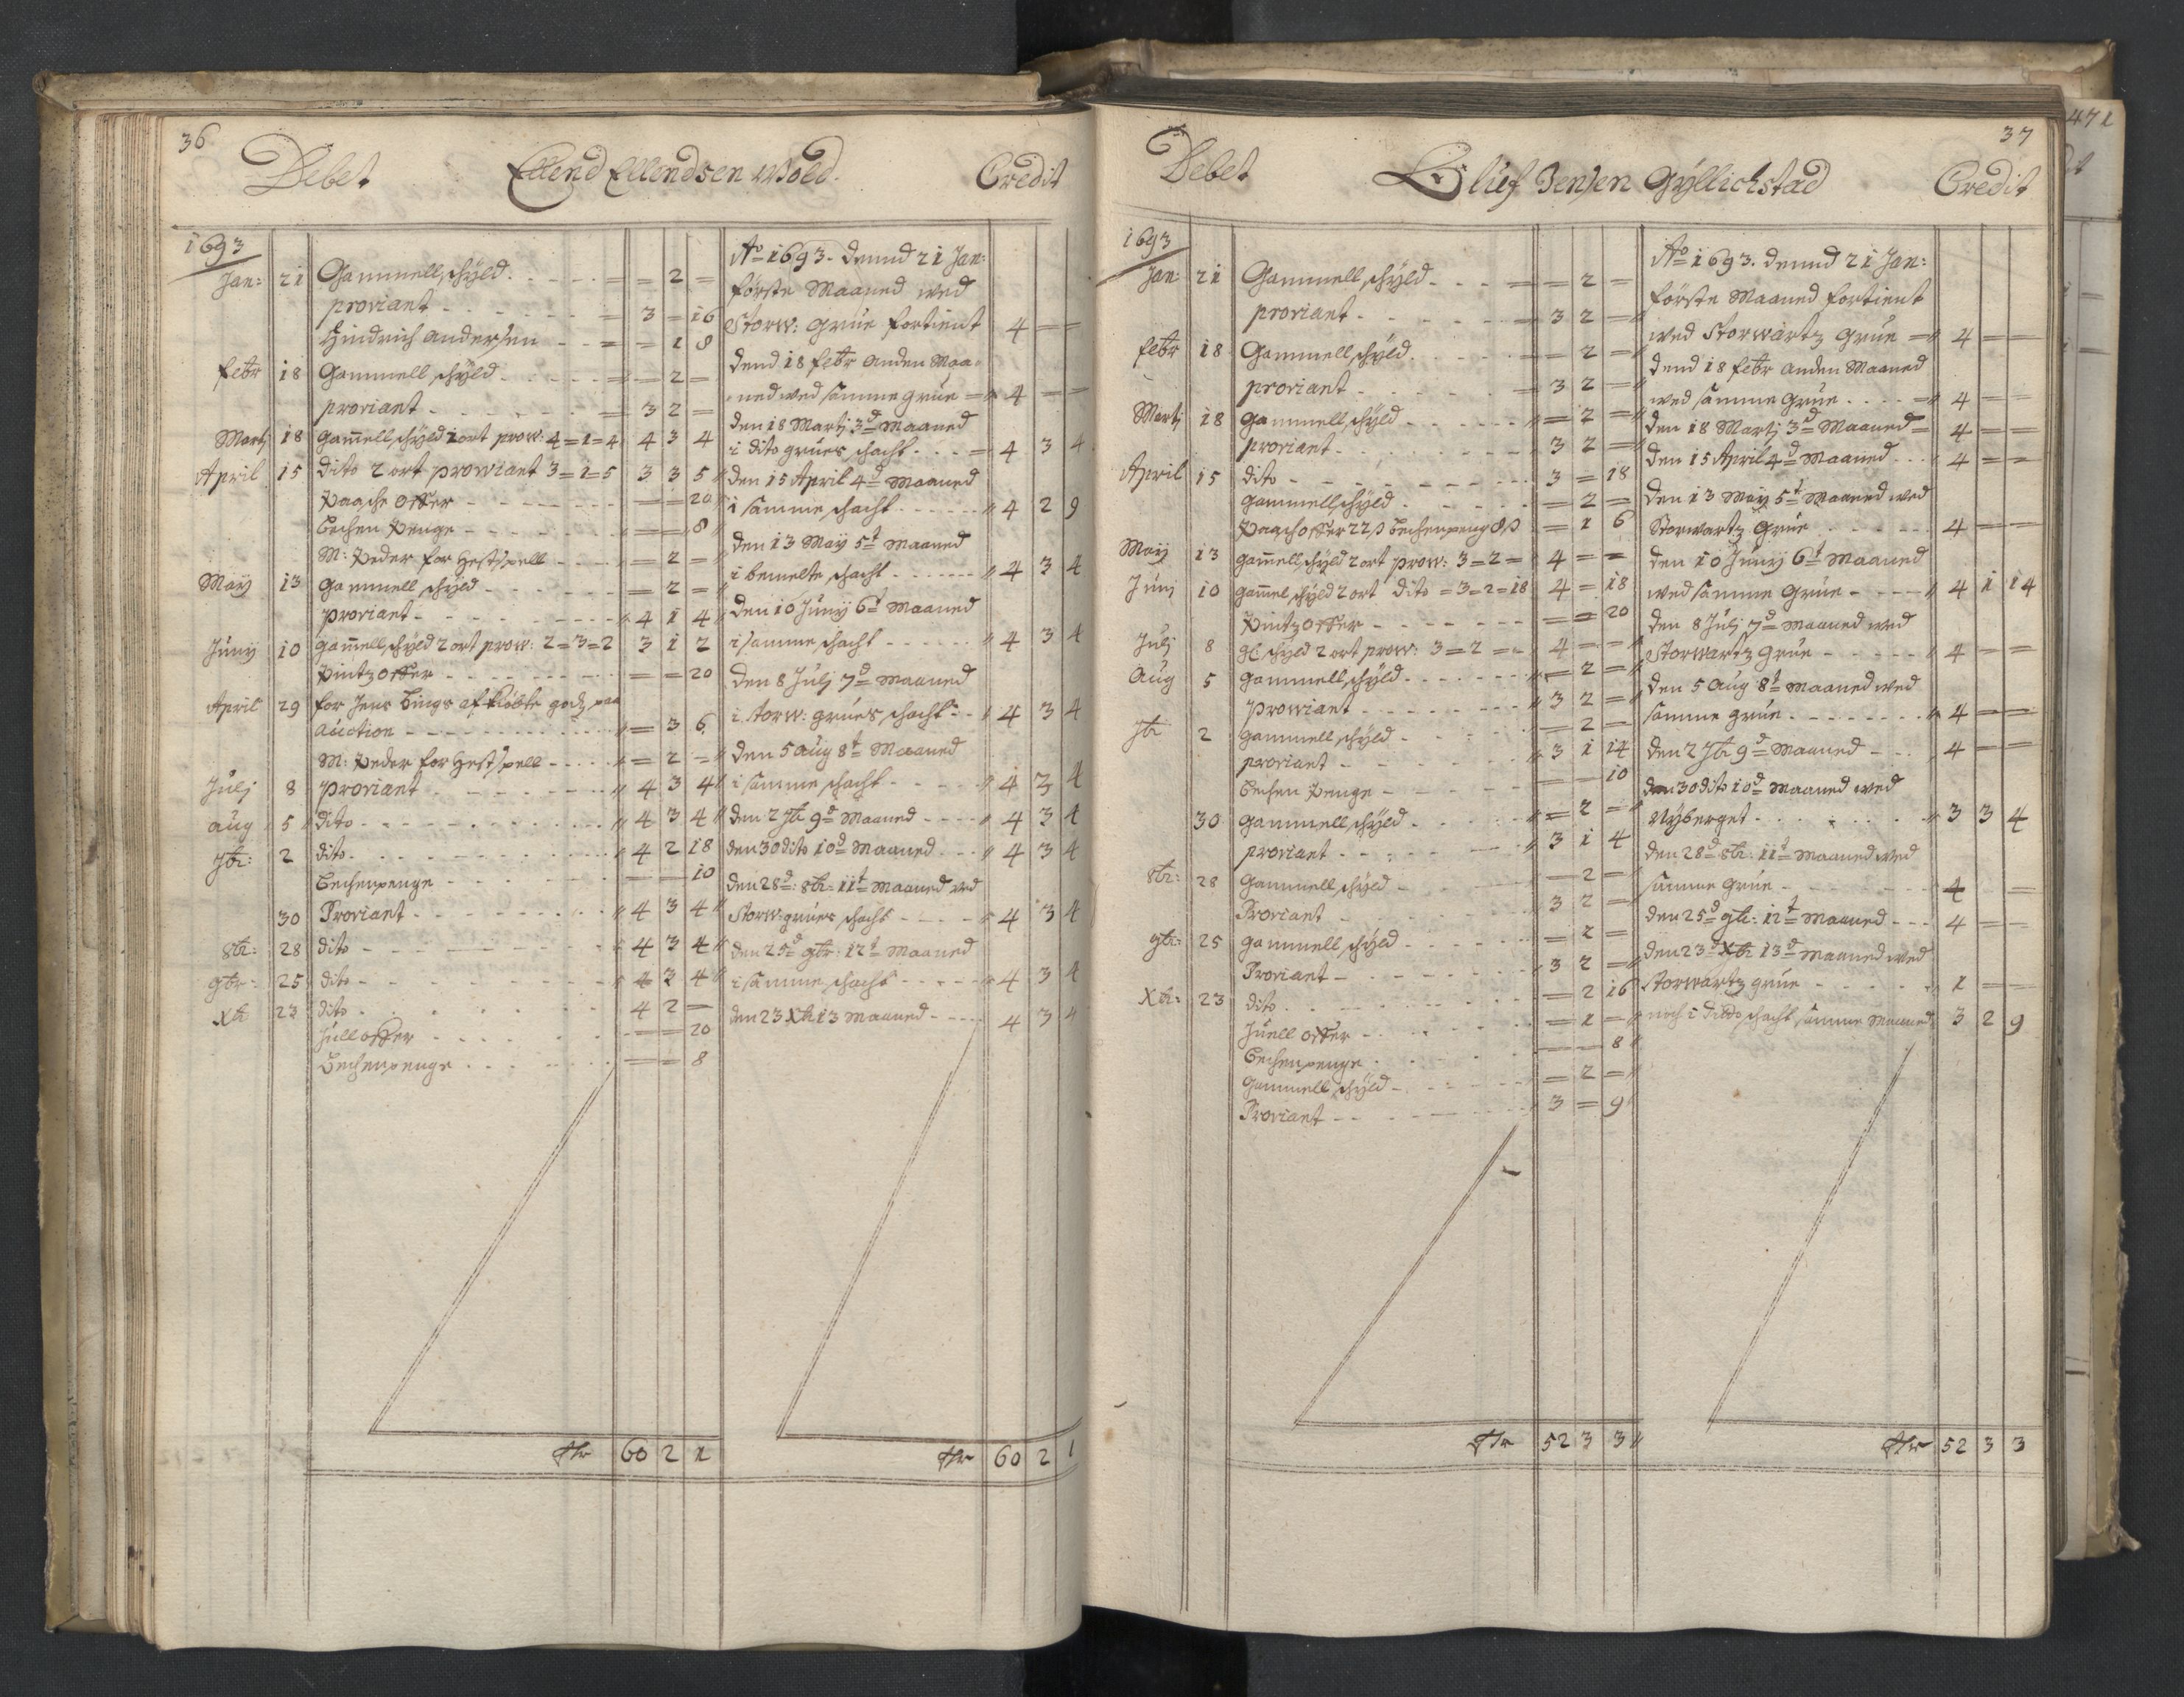 36
Debet Ellend Ellendsen Wold. Credit
1693
Jan: 21 Gammell schyld = = 2 =
proviant = 3 = 16
Hindrich Andersen = = 1 8
febr 18 Gammell schyld = 2 =
proviant = 3 2 =
Martj 18 gam̄ell schyld 1 ort prow: 4=1=4 4 3 4
April 15 dito 2 ort prowiant 3=1=5 3 3 5
Paasche Offer = = 20
Bechen Penge = = 8
M: Peder for Hestspell = 2 =
Maÿ 13 gammell schyld = 2 =
proviant 4 1 4
Junÿ 10 gam̄ell schyld 2 ort prow: 2=3=2 3 1 2
Pintz offer = = 20
April 29 for Jens Bings af kiøbte godz paa
Auction = 3 6
M: Peder for Hest spell = 2 =
Julj 8 proviant 4 3 4
aug 5 dito 4 3 4
7br: 2 dito 4 2 18
Bechenpenge = = 10
30 Proviant 4 3 4
8br: 28 dito 4 3 4
9br: 25 dito 4 3 4
Xbr 23 dito 4 2 =
Jull offer = = 20
Bechenpenge = = 8
Rdr 60 2 1
Ao 1693. dennd 21 Jan:
förste Maaned wed
Storw: grue fortient 4 = =
dend 18 febr anden Maa=
ned wed samme grue = 4 = =
den 18 Martj 3d Maaned
i dito grues schacht 4 3 4
den 15 April 4d Maaned
i samme schacht 4 2 9
den 13 Maÿ 5t Maaned
i bemelte schacht 4 3 4
den 10 Junÿ 6t Maaned
i samme schacht 4 3 4
den 8 Julj 7d Maaned
i storw: grues schacht 4 3 4
den 5 aug 8t Maaned
i samme schacht 4 3 4
den 2 7br 9d Maaned 4 3 4
den 30 dito 10d Maaned 4 3 4
den 28d: 8br: 11t Maaned wed
Storw: grues schacht 4 3 4
den 25d 9br: 12t Maaned
i samme schacht 4 3 4
den 23 Xbr 13 Maaned 4 3 4
Rdr 60 2 1
37
Debet Oluf Jensen Gÿllichstad Credit
1693
Jan: 21 Gammell schyld = 2 =
proviant 3 2 =
febr 18 Gammell schyld = 2 =
proviant 3 2 =
Martj 18 gammell schyld = 2 =
proviant 3 2 =
April 15 dito 3 = 18
gammell schyld = 2 =
Paasch offer 22 s Bechenpeng 8 s = 1 6
Maÿ 13 gam̄ell schyld 2 ort prow: 3=2= 4 = =
Junj 10 gammel schyld 2 ort dito =3=2=18 4 = 18
Pintz offer = = 20
Julj 8 gl schyld 2 ort prow: 3=2= 4 = =
Aug 5 gammell schyld = 2 =
prowiant 3 2 =
7br 2 gammell schyld = 2 =
proviant 3 1 14
Bechen Penge = = 10
30 gammell schyld = 2 =
proviant 3 1 4
8br: 28 Gammell schyld = 2 =
Proviant 3 2 =
9br: 25 gammell schyld = 2 =
Proviant 3 2 =
Xbr: 23 dito = 2 16
Juell offer = 1 =
Bechenpenge = = 8
Gammell schyld = 2 =
Proviant 3 = 9
Rdr 52 3 3
Ao 1693. dennd 21 Jan:
förste Maaned fortient
wed Storwartz grue 4 = =
dend 18 febr anden Maaned
wed samme grue 4 = =
den 18 Martj 3d Maaned 4 = =
den 15 April 4d Maaned 4 = =
den 13 Maÿ 5t Maaned wed
Storwartz Grue 4 = =
den 10 Junÿ 6t Maaned
wed samme grue 4 1 14
den 8 Julj 7d Maaned wed
Storwartz grue 4 = =
den 5 Aug 8t Maaned wed
samme grue 4 = =
den 2 7br 9d Maaned 4 = =
den 30 dito 10d Maaned wed
Nÿberget 3 3 4
den 28d 8br: 11t Maaned wed
samme grue 4 =
den 25d 9br: 12t Maaned 4 = =
den 23d Xbr 13d Maaned wed
Storwartz grue 1 = =
noch i dito schacht samme Maaned 3 2 9
Rdr 52 3 3
471